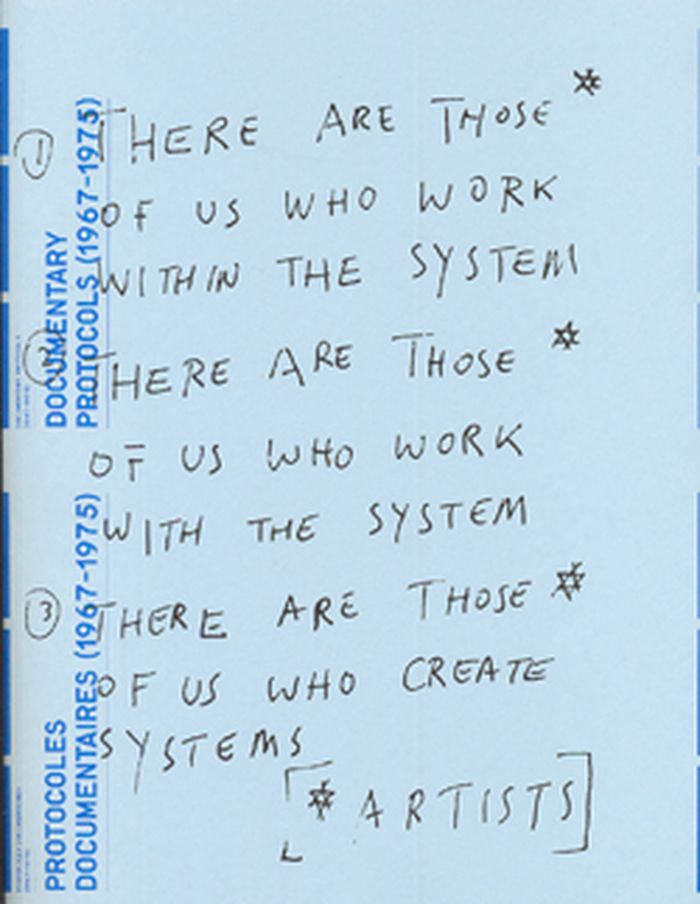 ① THERE ARE THOSE *
OF US WHO WORK
WITHIN THE SYSTEM
② THERE ARE THOSE *
OF US WHO WORK
WITH THE SYSTEM
③ THERE ARE THOSE *
OF US WHO CREATE
SYSTEMS
[* ARTISTS]
DOCUMENTARY
PROTOCOLS (1967-1975)
PROTOCOLES
DOCUMENTAIRES (1967-1975)